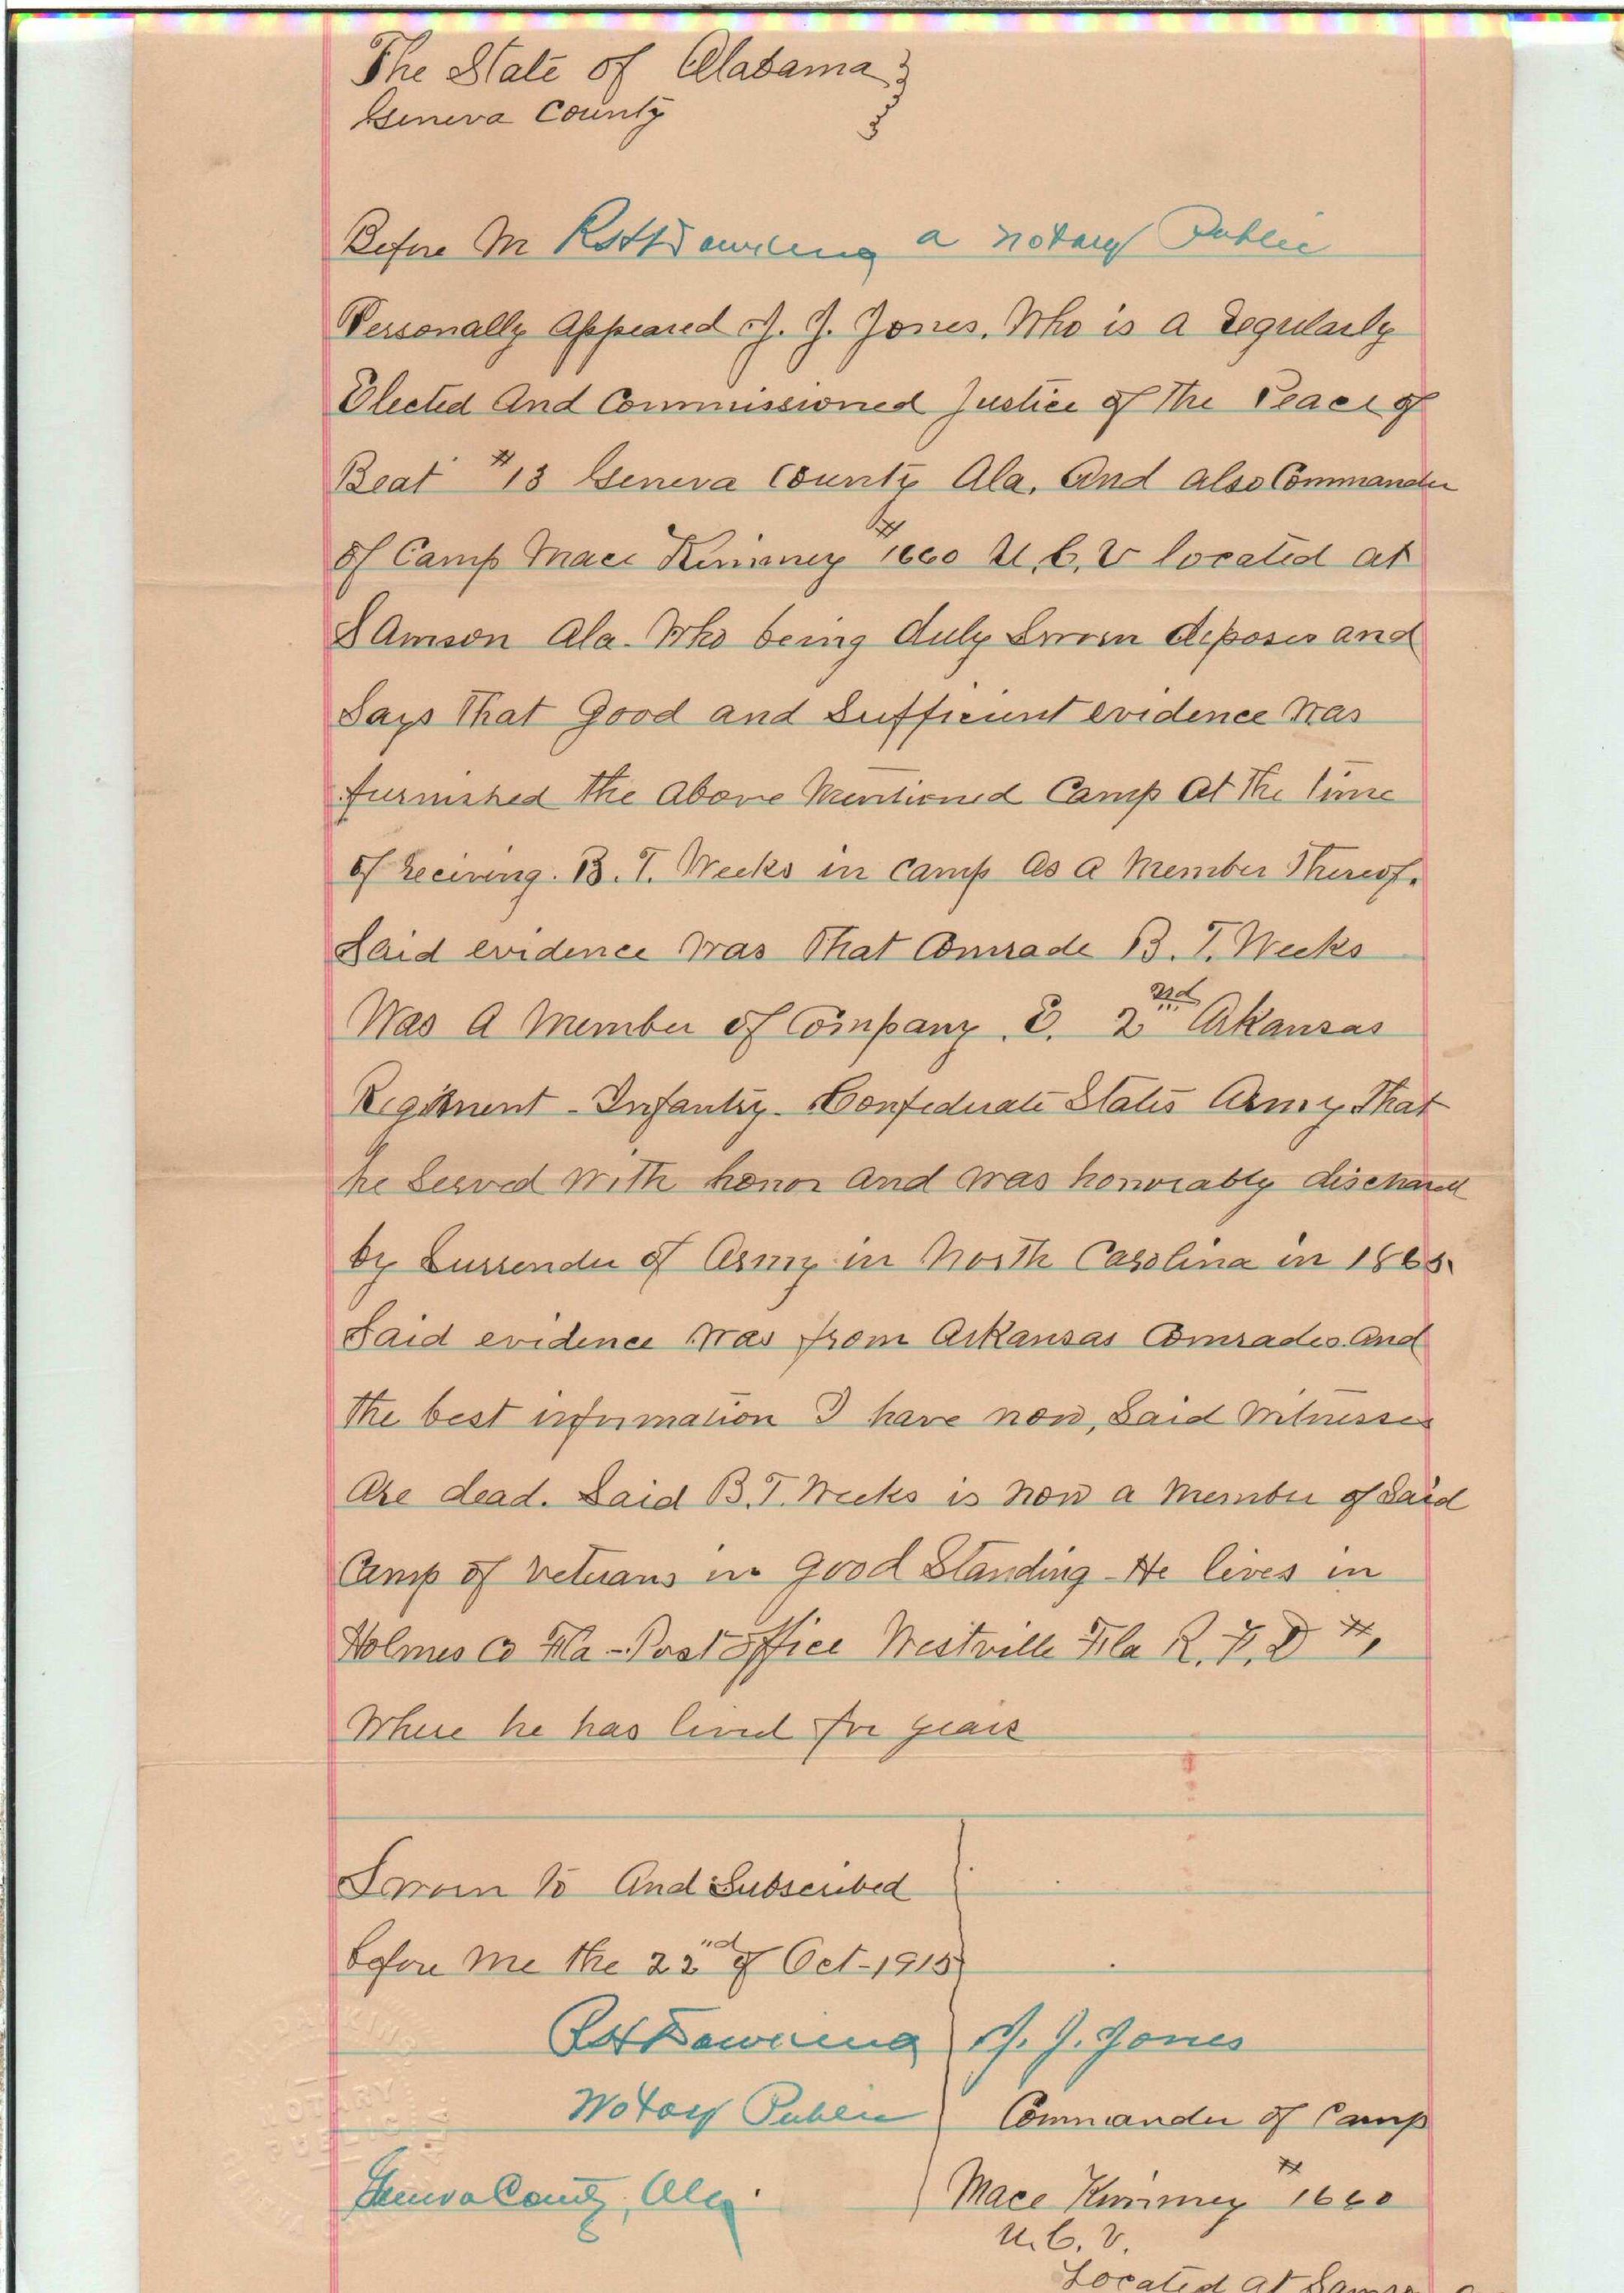 The State of Alabama
Geneva County
Before M a notary Public
Personally Appeared J. J. Jones. Who is a regularly
Elected And Commissioned Justice of The Peace of
Beat #13 Geneva County Ala. And also Commander
of Camp Mace Kimmey #1660 U. C. V located at
SAmson Ala. Who being duly Sworn deposes and
Says That Good and Sufficient evidence Was
furnished The Above Mentioned Camp At The time
of reciving. B. T. Weeks in Camp As A Member Thereof.
Said evidence Was That Comrade B. T. Weeks
Was A Member of Company. E. 2nd Arkansas
Regiment - Infantry - Confederate States Army That
he Served With honor and was honorably discharged
by Surrender of Army in North Carolina in 1865.
Said evidence Was from Arkansas Comrades And
The best information I have now, Said Witnesses
Are dead. Said B. T. Weeks is now a Member of Said
Camp of Veterans in Good Standing - He lives in
Holmes Co Fla - Post office Westville Fla R. F. D #1
Where he has lived for years
Sworn to And Subscribed
before me the 22nd of Oct - 1915
J. J. Jones
Notary Public
Commander of Camp
Geneva County, Ala.
Mace Kimmey #1660
U. C. V.
Located at